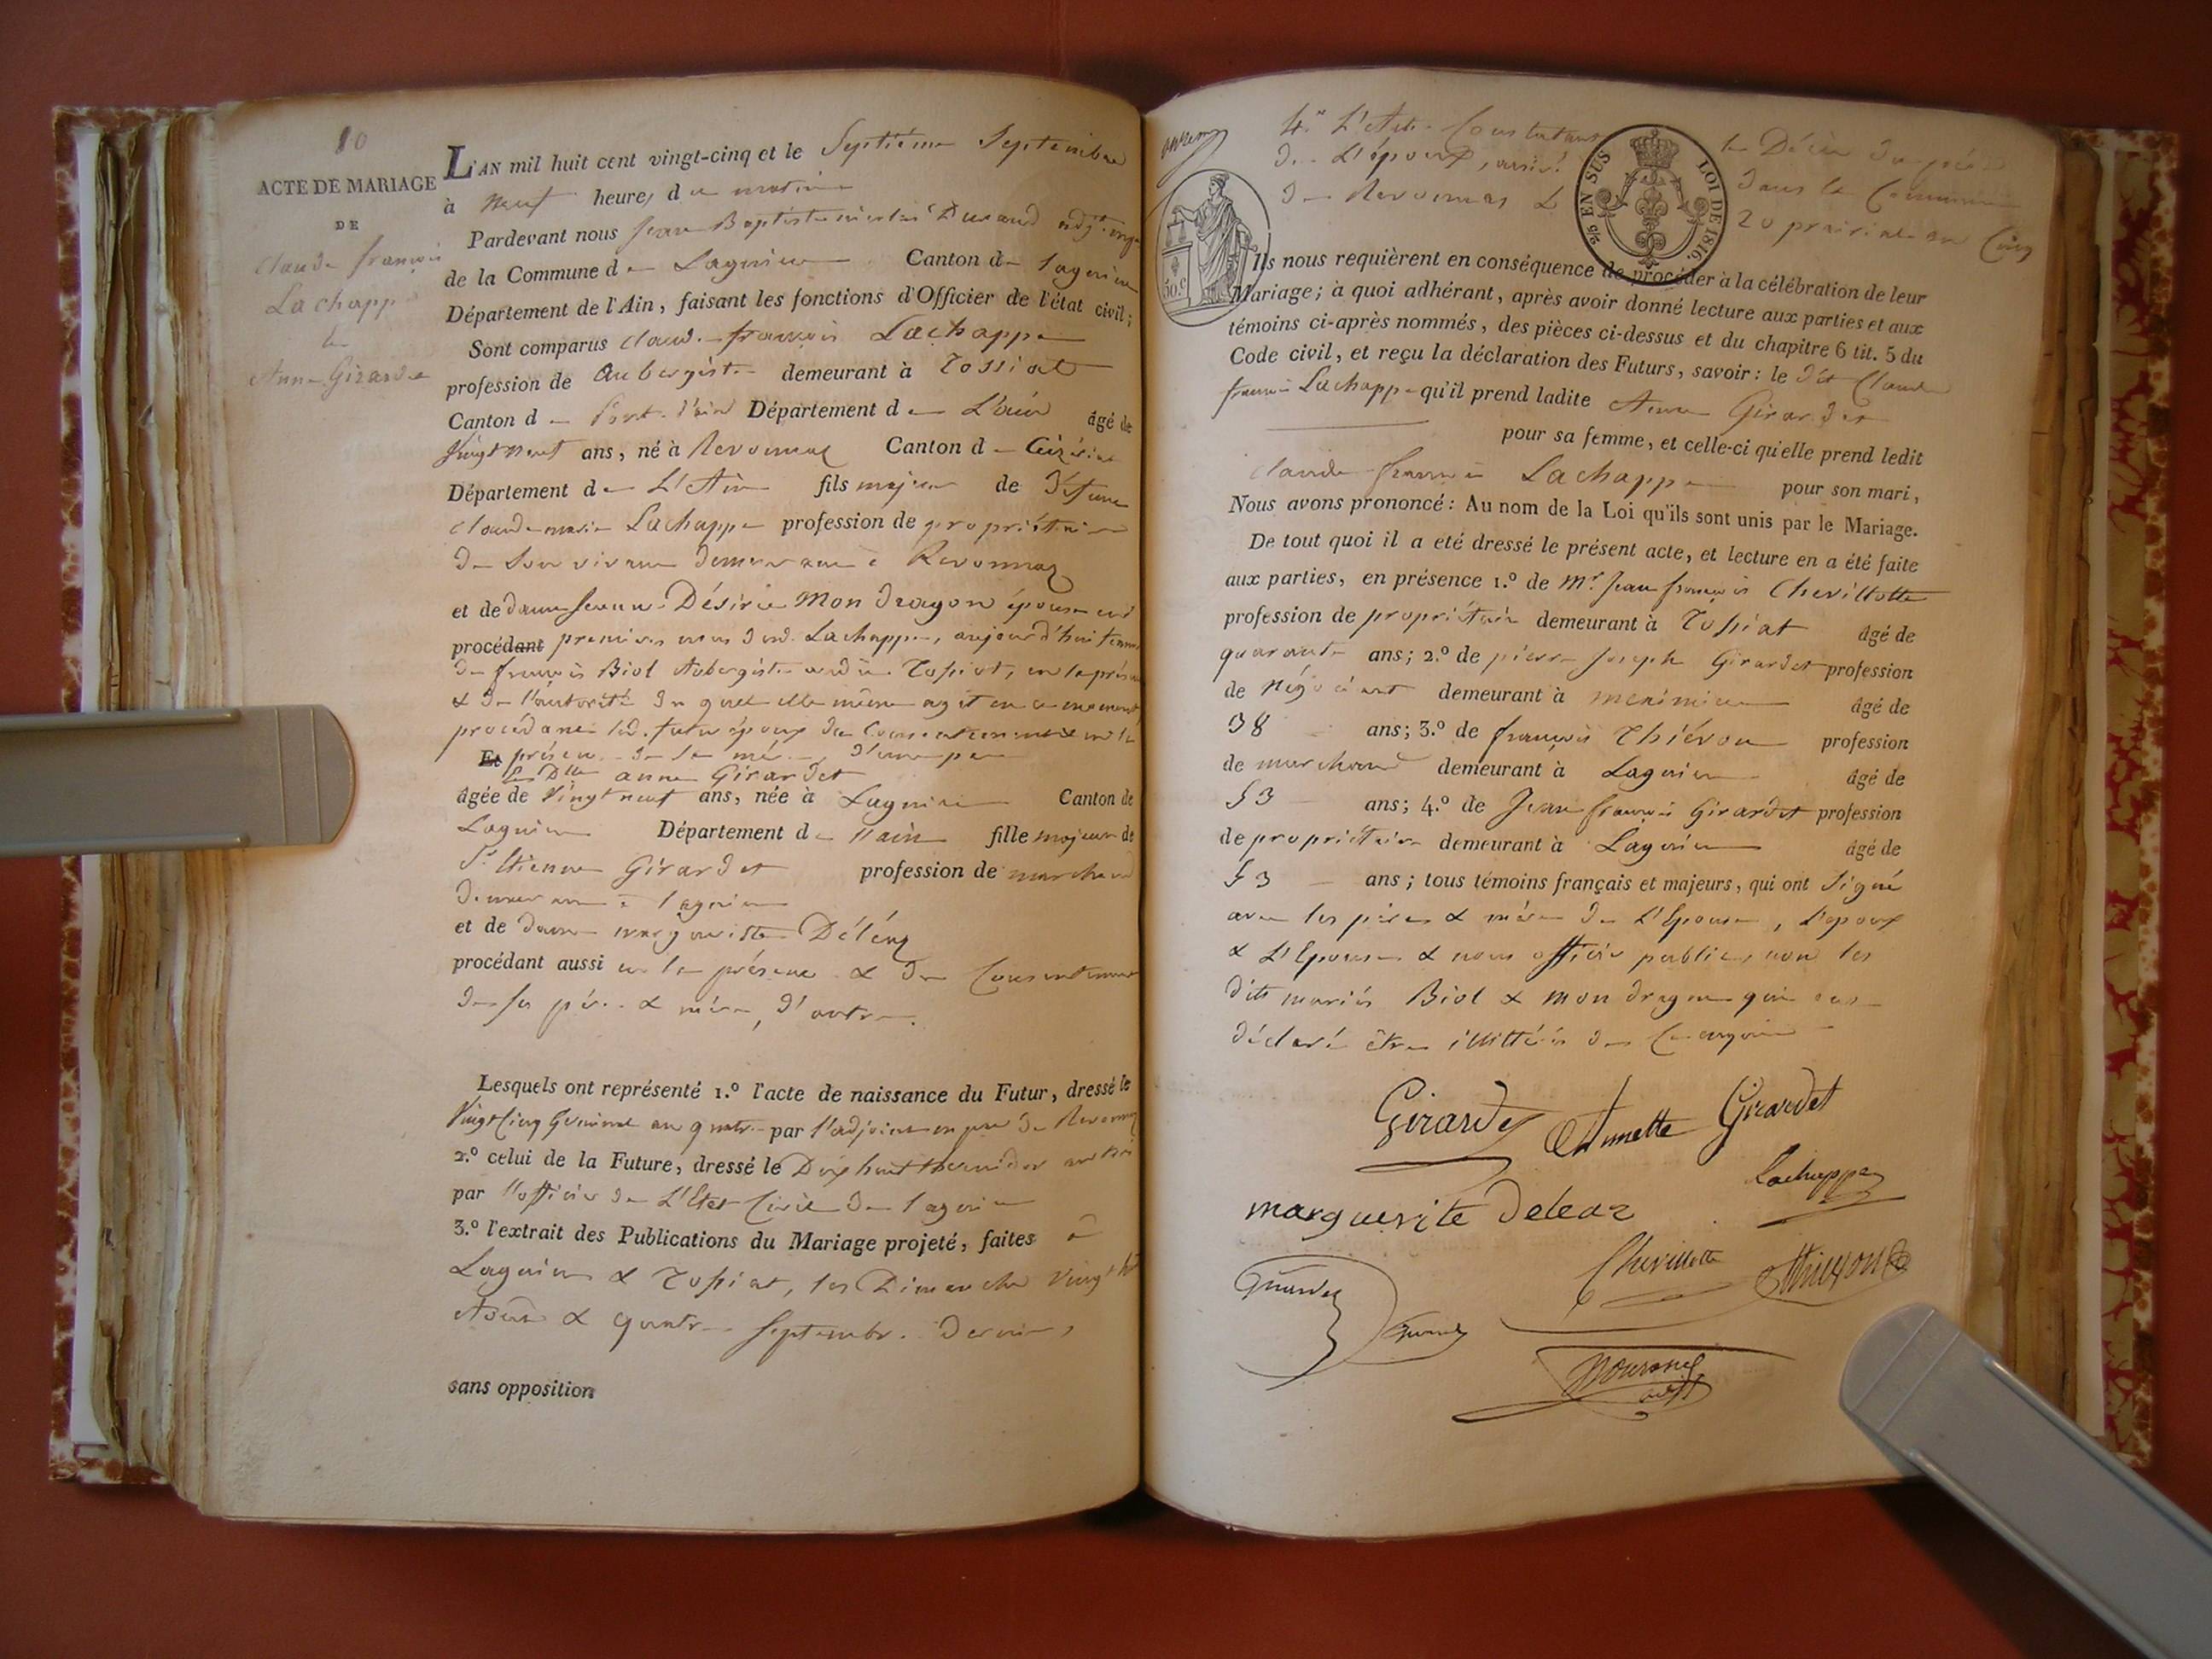 10
ACTE DE MARIAGE
DE
claude françois
Lachapp
&
Anne Girardet
L'AN mil huit cent vingt-cinq et le Septième Septembre
à neuf heures du matin
Pardevant nous jean Baptiste nicolas Durand adjt.
de la Commune de Lagnieu Canton de lagnieu
Département de l'Ain, faisant les fonctions d'Officier de l'état civil;
Sont comparus claude françois Lachappe
profession de Aubergiste demeurant à Tossiat
Canton de Pont-d'ain Département de L'ain âgé de
Vingt neuf ans, né à Revonnaz Canton de Ceizériat
Département de L'Ain fils majeur de défunt
claude marie Lachappe profession de propriétaire
de Son vivant demeurant à Revonnaz
et de dame jeanne Désirée Mondragon épouse en
procédant premières noces dud. Lachappe, aujourd'hui femme
de françois Biol Aubergiste audit Tossiat, en la présence
& de l'autorité duquel elle même agit en ce moment,
procédant led. futur époux du Consentement
Et présence de sa mère d'une part
& Dlle anne Girardet
âgée de Vingt neuf ans, née à Lagnieu Canton de
Lagnieu Département de l'ain fille majeure de
Sr. Etienne Girardet profession de marchand
demeurant à lagnieu
et de dame marguerite Déléaz
procédant aussi en la présence & du Consentement
de ses père & mère, d'autre.
Lesquels ont représenté 1.º l'acte de naissance du Futur, dressé le
Vingt Cinq Germinal an quatre par l'adjoint de Revonnaz
2.º celui de la Future, dressé le Dix huit thermidor an trois
par l'officier de L'Etat Civil de lagnieu
3.º l'extrait des Publications du Mariage projeté, faites à
Lagnieu & Tossiat, les Dimanches Vingt huit
Août & quatre Septembre dernier,
sans opposition
4.º L'Acte Constatant le Décès du père
de L'époux, arrivé dans la Commune
de Revonnas Le 20 prairial an Cinq
50.c
2/9 EN SUS LOI DE 1816.
Ils nous requièrent en conséquence de procéder à la célébration de leur
Mariage; à quoi adhérant, après avoir donné lecture aux parties et aux
témoins ci-après nommés, des pièces ci-dessus et du chapitre 6 tit. 5 du
Code civil, et reçu la déclaration des Futurs, savoir: le dit Claude
françois Lachappe qu'il prend ladite Anne Girardet
pour sa femme, et celle-ci qu'elle prend ledit
claude françois Lachappe pour son mari,
Nous avons prononcé: Au nom de la Loi qu'ils sont unis par le Mariage.
De tout quoi il a eté dressé le présent acte, et lecture en a été faite
aux parties, en présence 1.º de Mr. Jean françois Chevillotte
profession de propriétaire demeurant à Tossiat âgé de
quarante ans; 2.º de pierre joseph Girardet profession
de négociant demeurant à meximieux âgé de
38 ans; 3.º de françois Thiévon profession
de marchand demeurant à Lagnieu âgé de
53 ans; 4.º de Jean françois Girardet profession
de propriétaire demeurant à Lagnieu âgé de
53 ans; tous témoins français et majeurs, qui ont Signé
avec les père & mère de L'Epouse, L'époux
& L'Epouse & nous officier public, non les
dits mariés Biol & mondragon qui ont
déclaré être illittérés de ce enquis
Girardet Annette Girardet
Lachappe
marguerite deleaz
Chevillotte Thievon
Girardet
Girardet